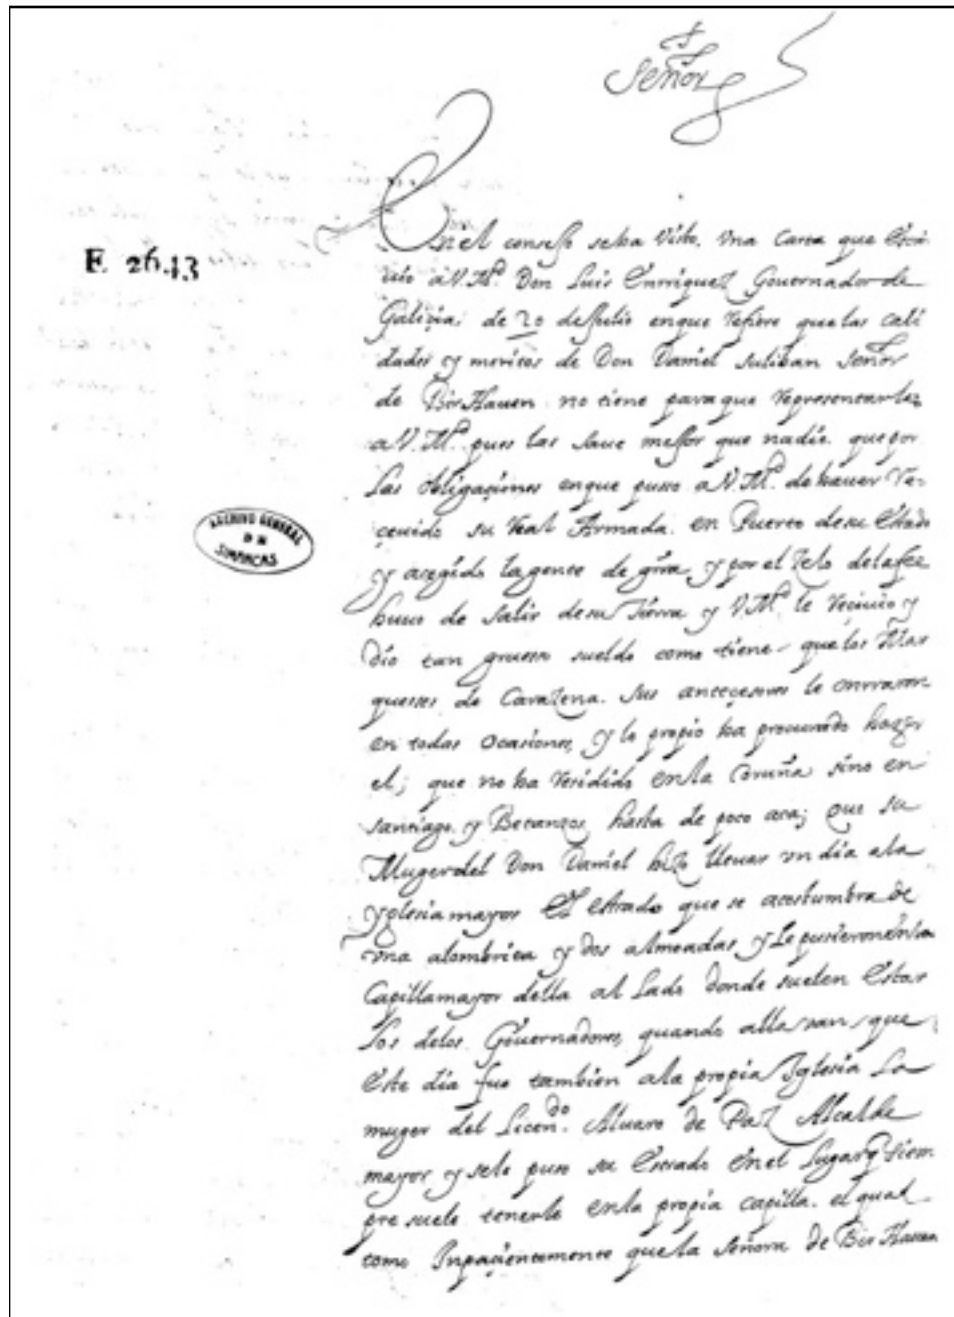 Señor
En el conseJo seha Visto. Vna Carta que escri
uio a V. Mg.d Don Luis Enrriquez Gouernador de
E 2643
Galiçia, de 20 de Julio en que refiere que las cali
dades y meritos de Don Daniel suliban señor
de BirHauen no tiene para que representarles
a V. Mg.d pues las saue meJor que nadie. que por
las obligaçiones en que puso a V. Mg.d de hauer Re-
çeuido su Real Armada. en Puerto de su estado
ARCHIVO GENERAL
DE
SIMANCAS
y acogido la gente de grra y por el Zelo de la fee
huuo de salir de su Tierra y V. Mg.d le Reciuio y
dio tan grueso sueldo como tiene que los Mar
queses de CaraZena. sus anteçesores le onrraron
en todas ocasiones, y lo propio ha procurado hazer
el; que no ha residido en la Coruña sino en
santiago, y Betanzos, hasta de poco aca; que su
Muger del Don Daniel hizo lleuar vn dia a la
yglesia mayor el estrado que se acostumbra de
vna alombrica y dos almoadas, y le pusieron en la
Capilla mayor della al lado donde suelen estar
los de los Gouernadores, quando alla van, que
este dia fue tambien a la propia Iglesia la
muger del Licen.do Aluaro de Paz Alcalde
mayor y sele puso su estrado en el lugar q siem
pre suele tenerle en la propia capilla. el qual
tomo Inpaçientemente que la señora de Bir Hauen